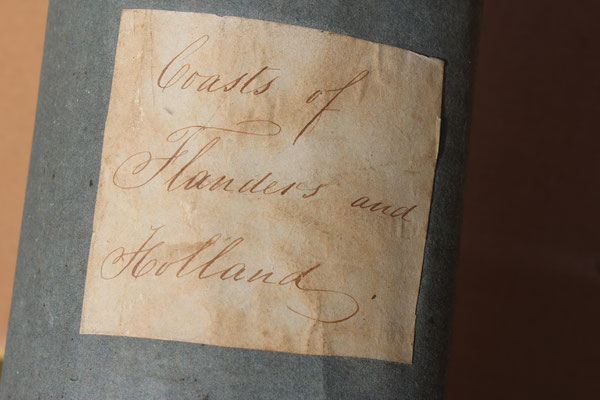 Coasts of
Flanders and
Holland.